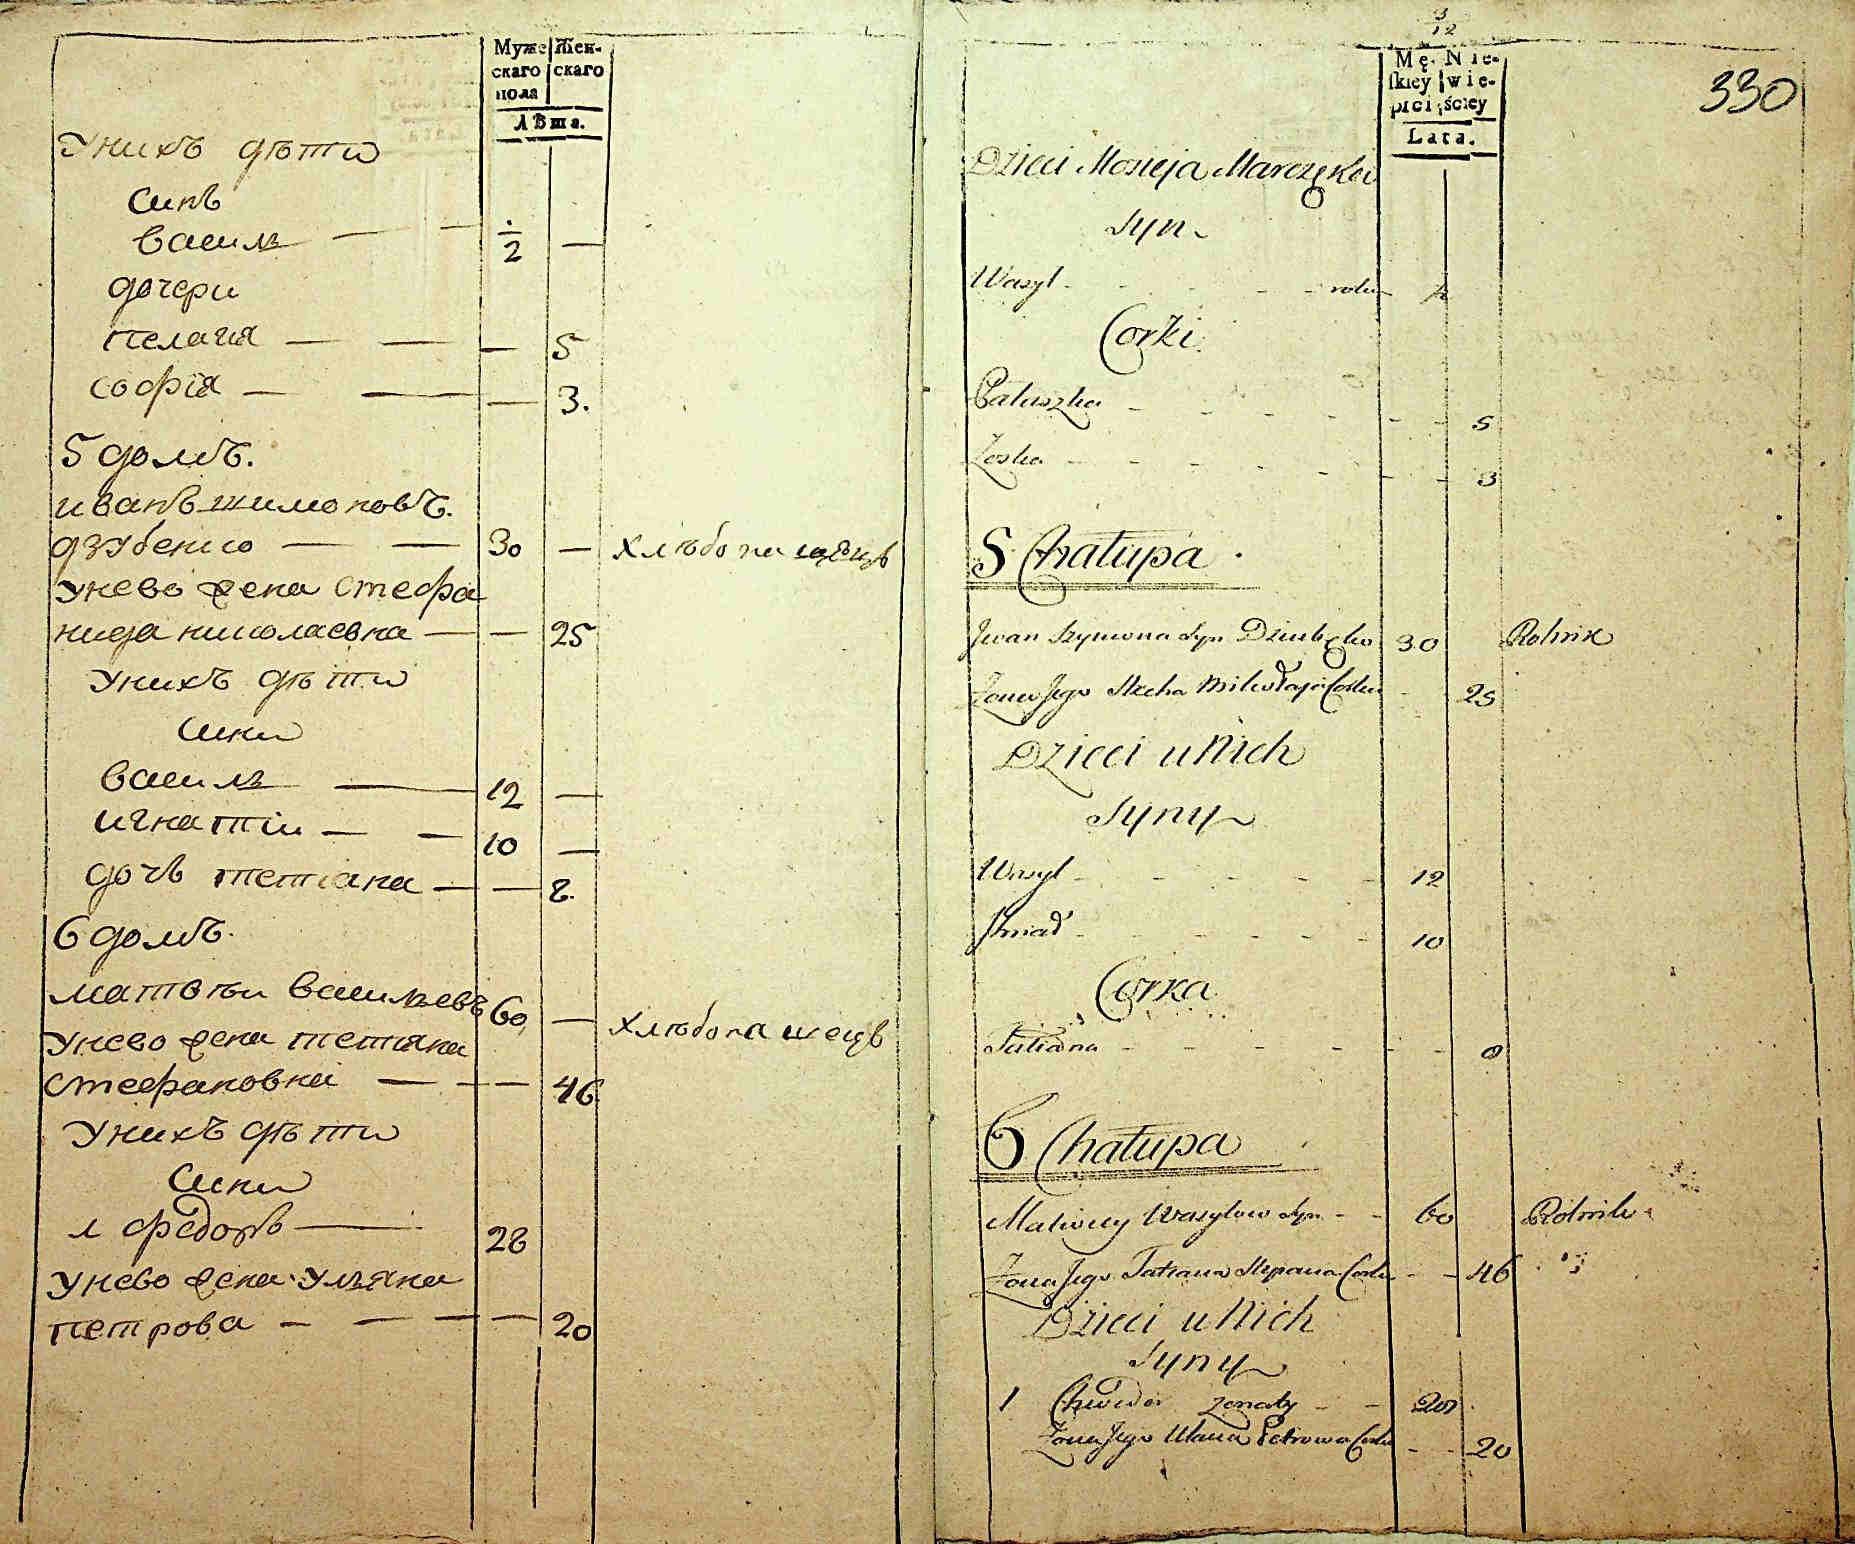 Муже
скаго
пола
Жен-
скаго
Лѣта.
Унихъ дѣти
синъ
василь — — ½ —
дочери
пелагия — — — 5
софія — — — 3.
5 домъ.
иванъ шимоновъ.
дзубенко — — 30 — хлѣбопашецъ
унево жена стефа
нида николаевна — — 25
унихъ дѣти
сини
василь — 12 —
игнатіи — — 10 —
дочъ тетіана — — 8.
6 домъ.
матвѣи васильевъ 60 — хлѣбопашецъ
унево жена тетіяна
стефановна — — — 46
унихъ дѣти
сини
1 федоръ — 28
унево жена ульяна
петрова — — — — 20
3/12
Mę-
skiey
płci
Nie-
wie-
ściey
Lata.
330
Dzieci Mosieja Marczęka
Syn
Wasyl - - - roku ½
Corki
Paluszka - - - - 5
Zoska - - - - 3
5 Chałupa
Jwan Szymona Syn Dziubęko 30 Rolnik
Żona Jego Stecha Mikołaja Corka - 25
Dzieci u Nich
Syny
Wasyl - - - - 12
Jhnad - - - - 10
Corka
Tatiana - - - - 8
6 Chałupa
Matwiey Wasylow Syn - - 60 Rolnik
Żona Jego Tatiana Stepana Corka - - 46
Dzieci u Nich
Syny
1 Chwedor żonaty - - 28
Żona Jego Ulana Petrowa Corka - - 20